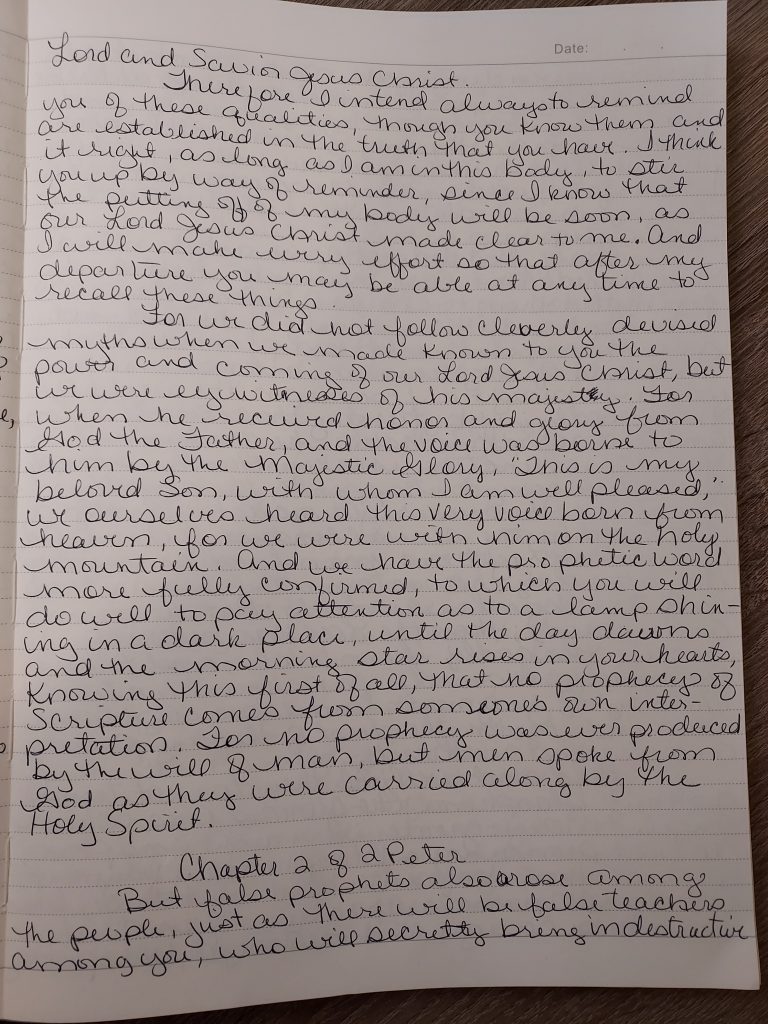 Date:
Lord and Savior Jesus Christ.
Therefore I intend always to remind
you of these qualities, though you know them and
are established in the truth that you have. I think
it right, as long as I am in this body, to stir
you up by way of reminder, since I know that
the putting off of my body will be soon, as
our Lord Jesus Christ made clear to me. And
I will make every effort so that after my
departure you may be able at any time to
recall these things.
For we did not follow cleverly devised
myths when we made known to you the
power and coming of our Lord Jesus Christ, but
we were eyewitnesses of his majesty. For
when he received honor and glory from
God the Father, and the voice was borne to
him by the Majestic Glory, "This is my
beloved Son, with whom I am well pleased,"
we ourselves heard this very voice born from
heaven, for we were with him on the holy
mountain. And we have the prophetic word
more fully confirmed, to which you will
do well to pay attention as to a lamp shin-
ing in a dark place, until the day dawns
and the morning star rises in your hearts,
knowing this first of all, that no prophecy of
Scripture comes from someone's own inter-
pretation. For no prophecy was ever produced
by the will of man, but men spoke from
God as they were carried along by the
Holy Spirit.
Chapter 2 of 2 Peter
But false prophets also arose among
the people, just as there will be false teachers
among you, who will secretly bring in destructive